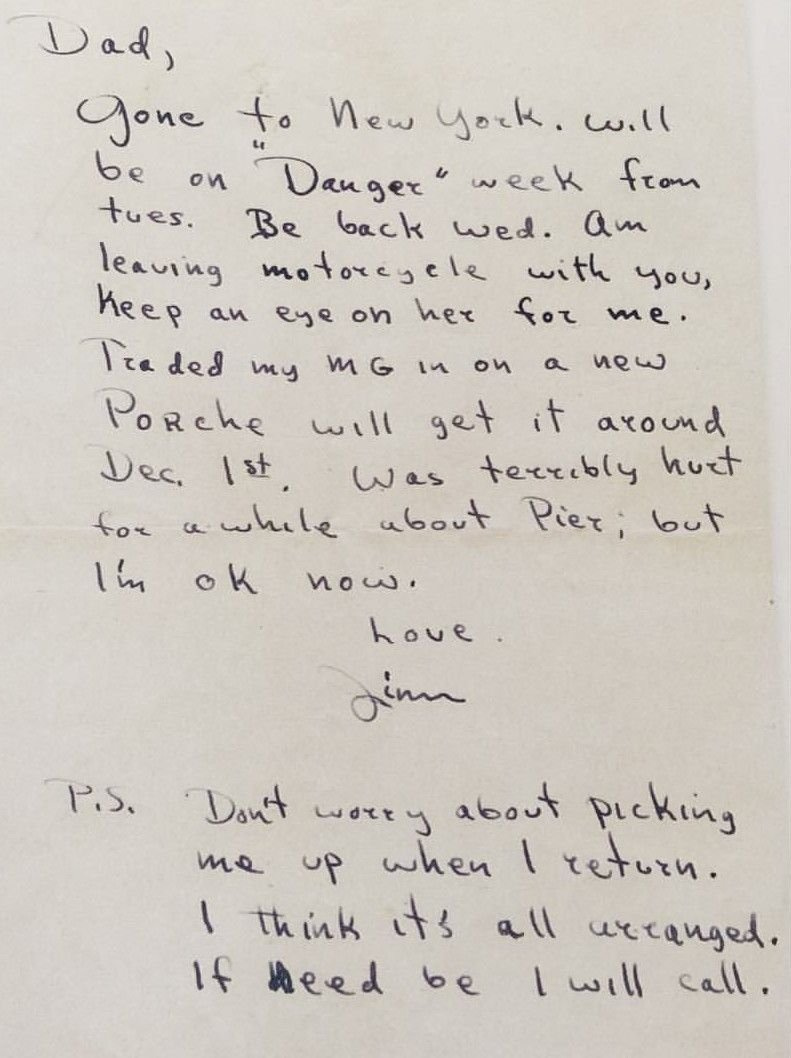 Dad,
Gone to New York. will
be on "Danger" week from
tues. Be back wed. Am
leaving motorcycle with you,
Keep an eye on her for me.
Traded my MG in on a new
PORche will get it around
Dec. 1st. Was terribly hurt
for a while about Pier; but
I'm ok now.
Love.
Jim
P.S. Don't worry about picking
me up when I return.
I think it's all arranged.
If Need be I will call.